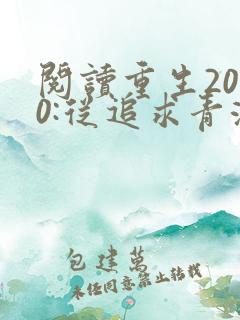 閱讀重生20
0:從追求青
包建萬
未經同意禁止轉載